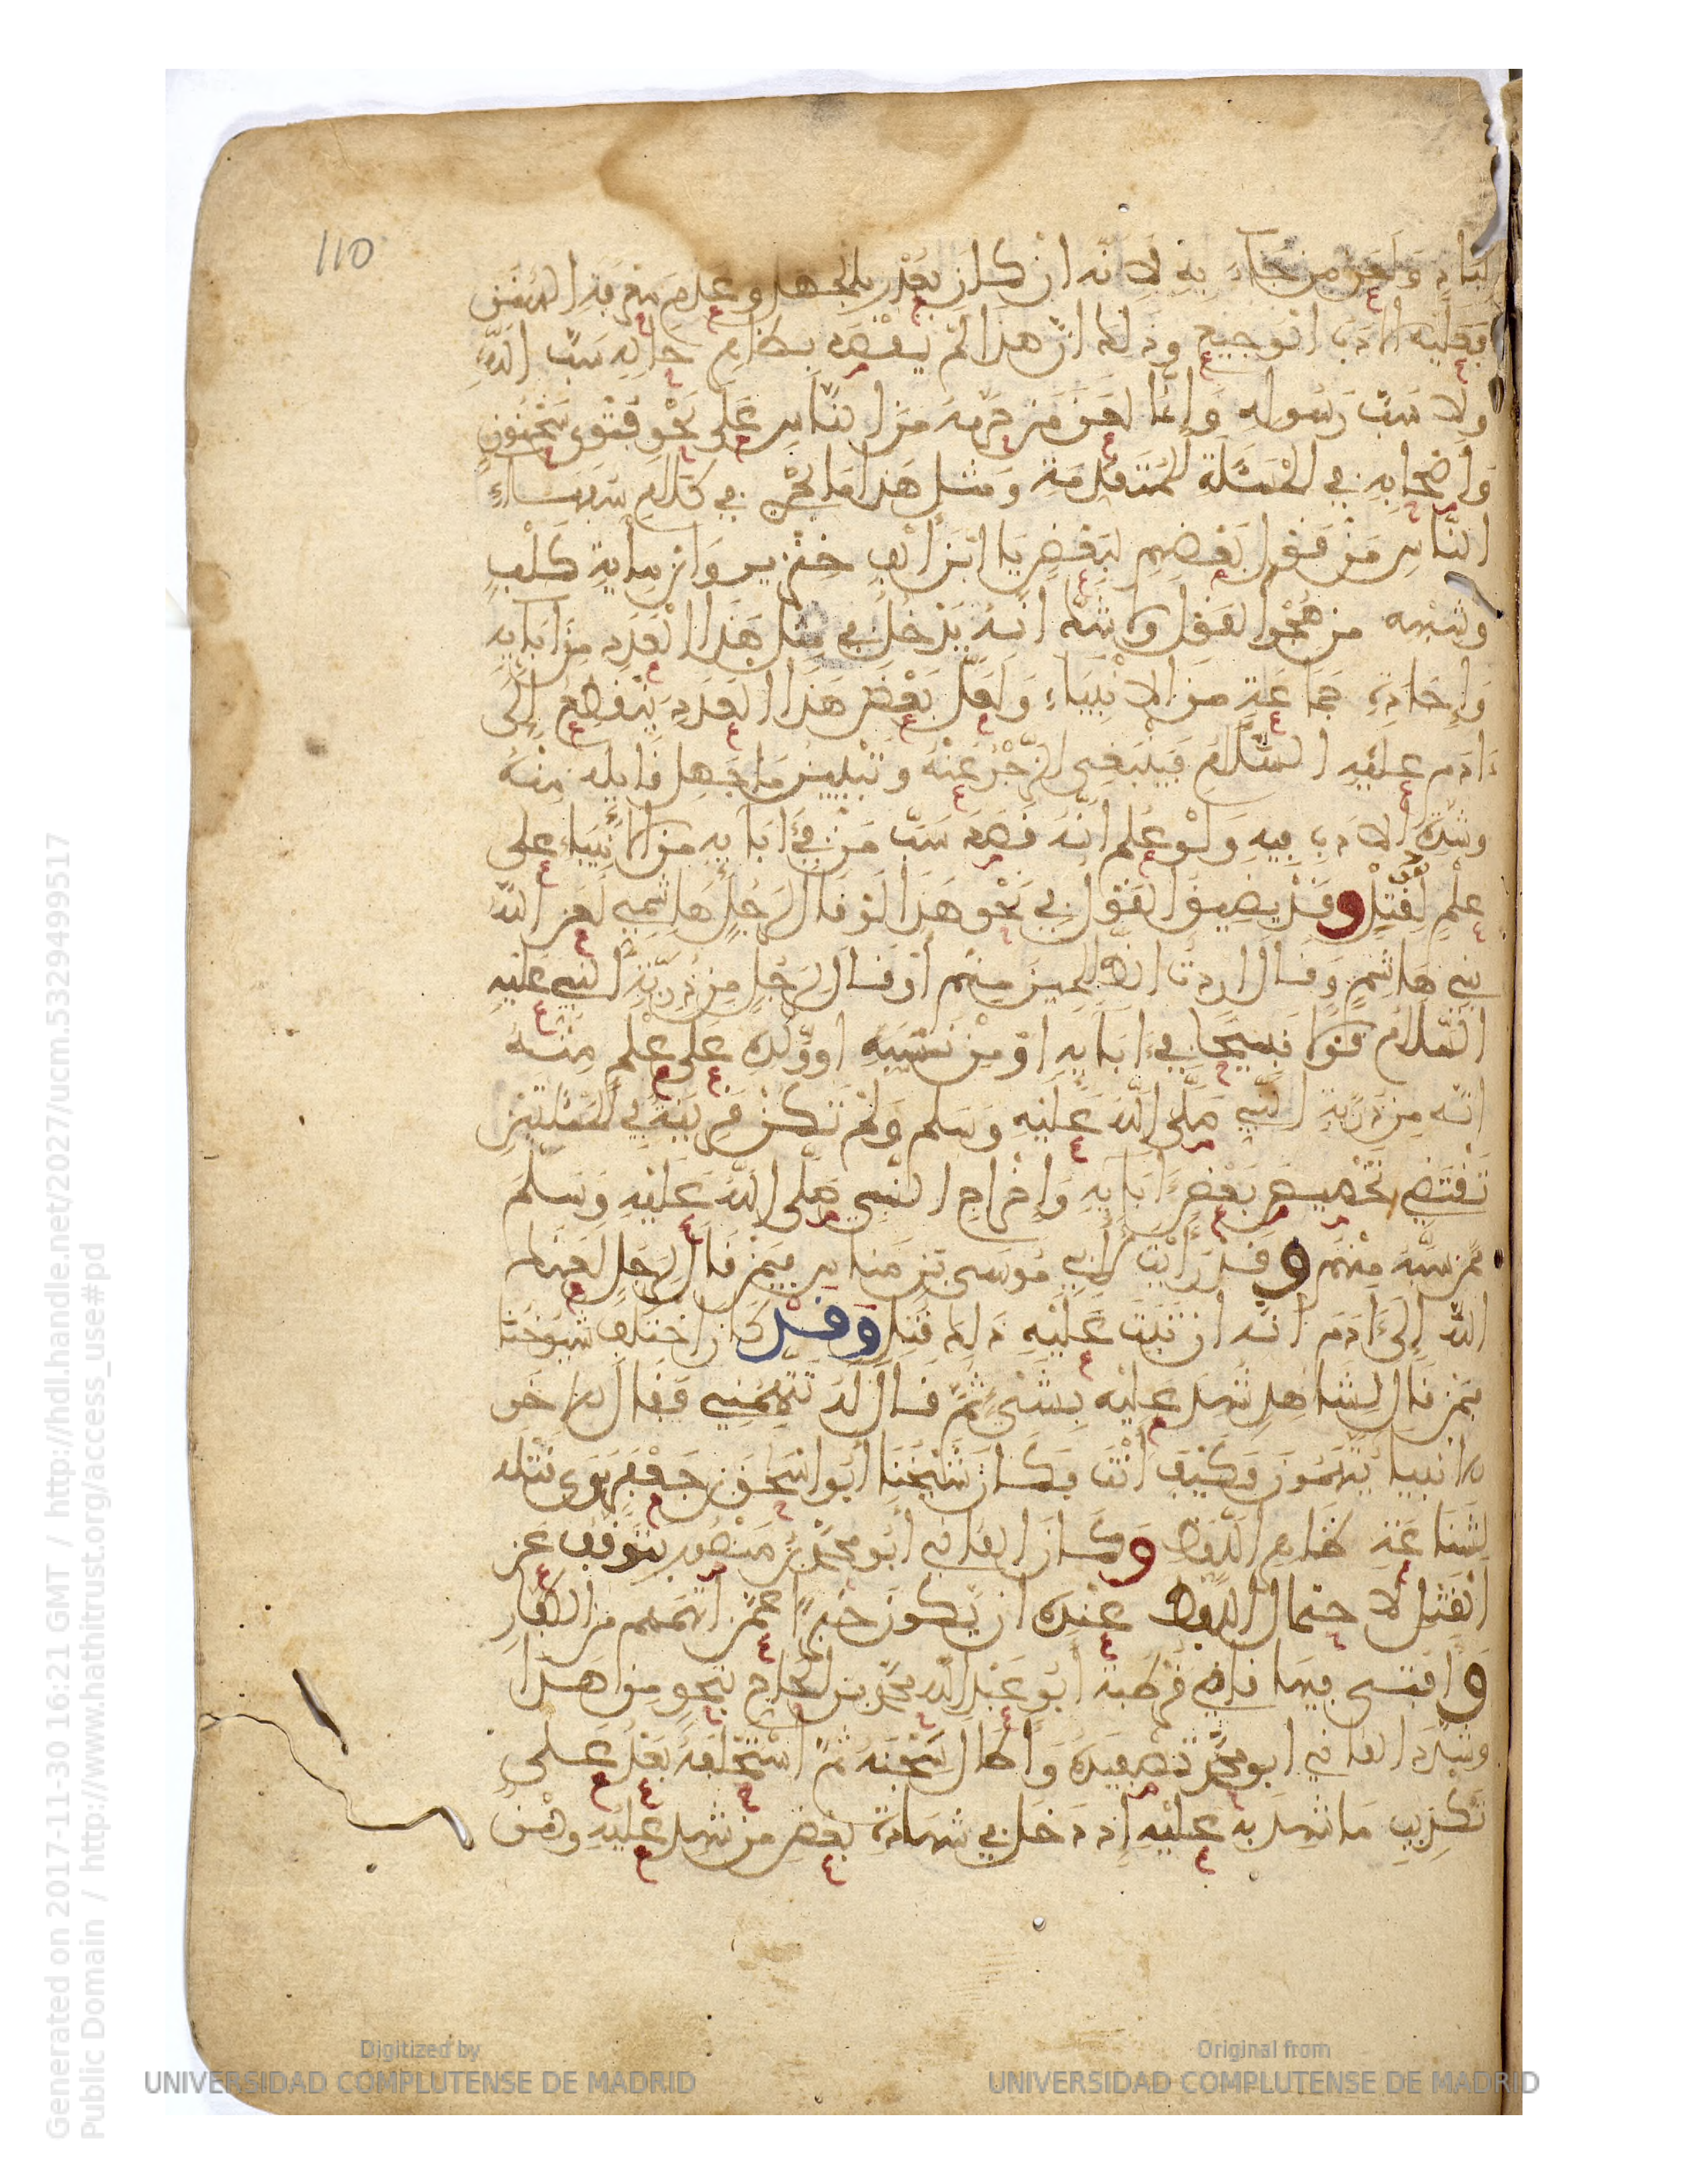 110
لباد ولعن من جاء به لانه ان كان يعذر بالجهل وعدم معرفة السنن
فعليه الادب الوجيع وذلك ان هذا لم يقصد بظاهر حاله سب الله
ولا سب رسوله وانما لعن من حرمه من الناس على نحو فتوى سحنون
واصحابه في المسئلة المتقدمة ومثل هذا ما يجري في كلام سفهاء
الناس من قول بعضهم لبعض يا ابن الف خنزير وابن ماية كلب
وشبهه من هجو القول ولا شك انه يدخل في مثل هذا العدد من ابايه
واجداده جماعة من الانبياء ولعل بعض هذا العدد ينقطع الى
ءادم عليه السلام فينبغي الزجر عنه وتبيين ما جهل قايله منه
وشدة الادب فيه ولو علم انه قصد سب من في ءابايه من الانبياء على
علم لقتل وقد يضيق القول في نحو هذا لو قال لرجل هاشمي لعن الله
بني هاشم وقال اردت الظالمين منهم او قال لرجل من ذرية النبي عليه
السلام قولا قبيحا في ءابايه او من نسبه او ولده على علم منه
انه من ذرية النبي صلى الله عليه وسلم ولم تكن قرينة في المسئلتين
تقتضي تخصيص بعض ءابايه واخراج النبي صلى الله عليه وسلم
ممن سبه منهم وقد رايت لابي موسى بن مناس فيمن قال لرجل لعنك
الله الى ءادم انه ان ثبت عليه ذلك قتل وقد كان اختلف شيوخنا
فيمن قال لشاهد شهد عليه بشيء ثم قال له تتهمني فقال له الاخر
الانبيا يتهمون فكيف انت فكان شيخنا ابو اسحق بن جعفر يرى قتله
لشناعة ظاهر اللفظ وكان القاضي ابو محمد بن منصور يتوقف عن
القتل لاحتمال اللفظ عنده ان يكون خبرا عمن اتهمهم من الكفار
وافتى فيها قاضي قرطبة ابو عبد الله محمد بن الحاج بنحو من هذا
وشدد القاضي ابو محمد تصفيده واطال سجنه ثم استحلفه بعد على
تكذيب ما شهد به عليه اذ دخل في شهادة بعض من شهد عليه وهن
Generated on 2017-11-30 16:21 GMT / http://hdl.handle.net/2027/ucm.5329499517
Public Domain / http://www.hathitrust.org/access_use#pd
Digitized by
UNIVERSIDAD COMPLUTENSE DE MADRID
Original from
UNIVERSIDAD COMPLUTENSE DE MADRID